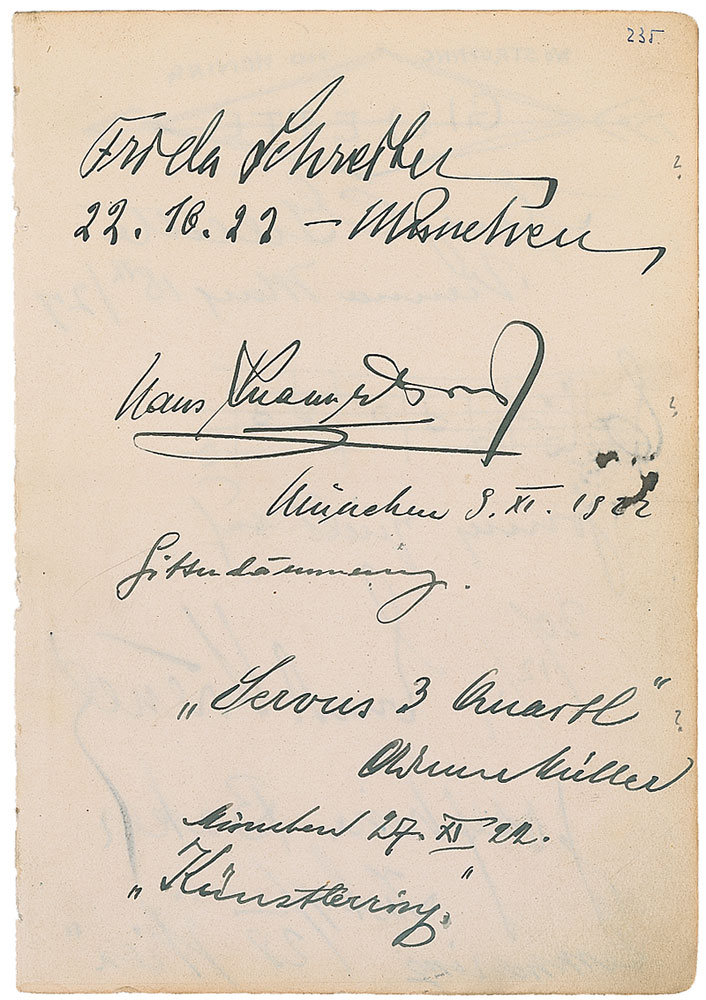 235.
Frida Schreiber
?
22.10.22 – München
Hans
?
München 9. XI. 1922
Götterdämmerung.
„Servus 3 Quartl"
?
Müller
München 27. XI 22.
„Künstlerring."